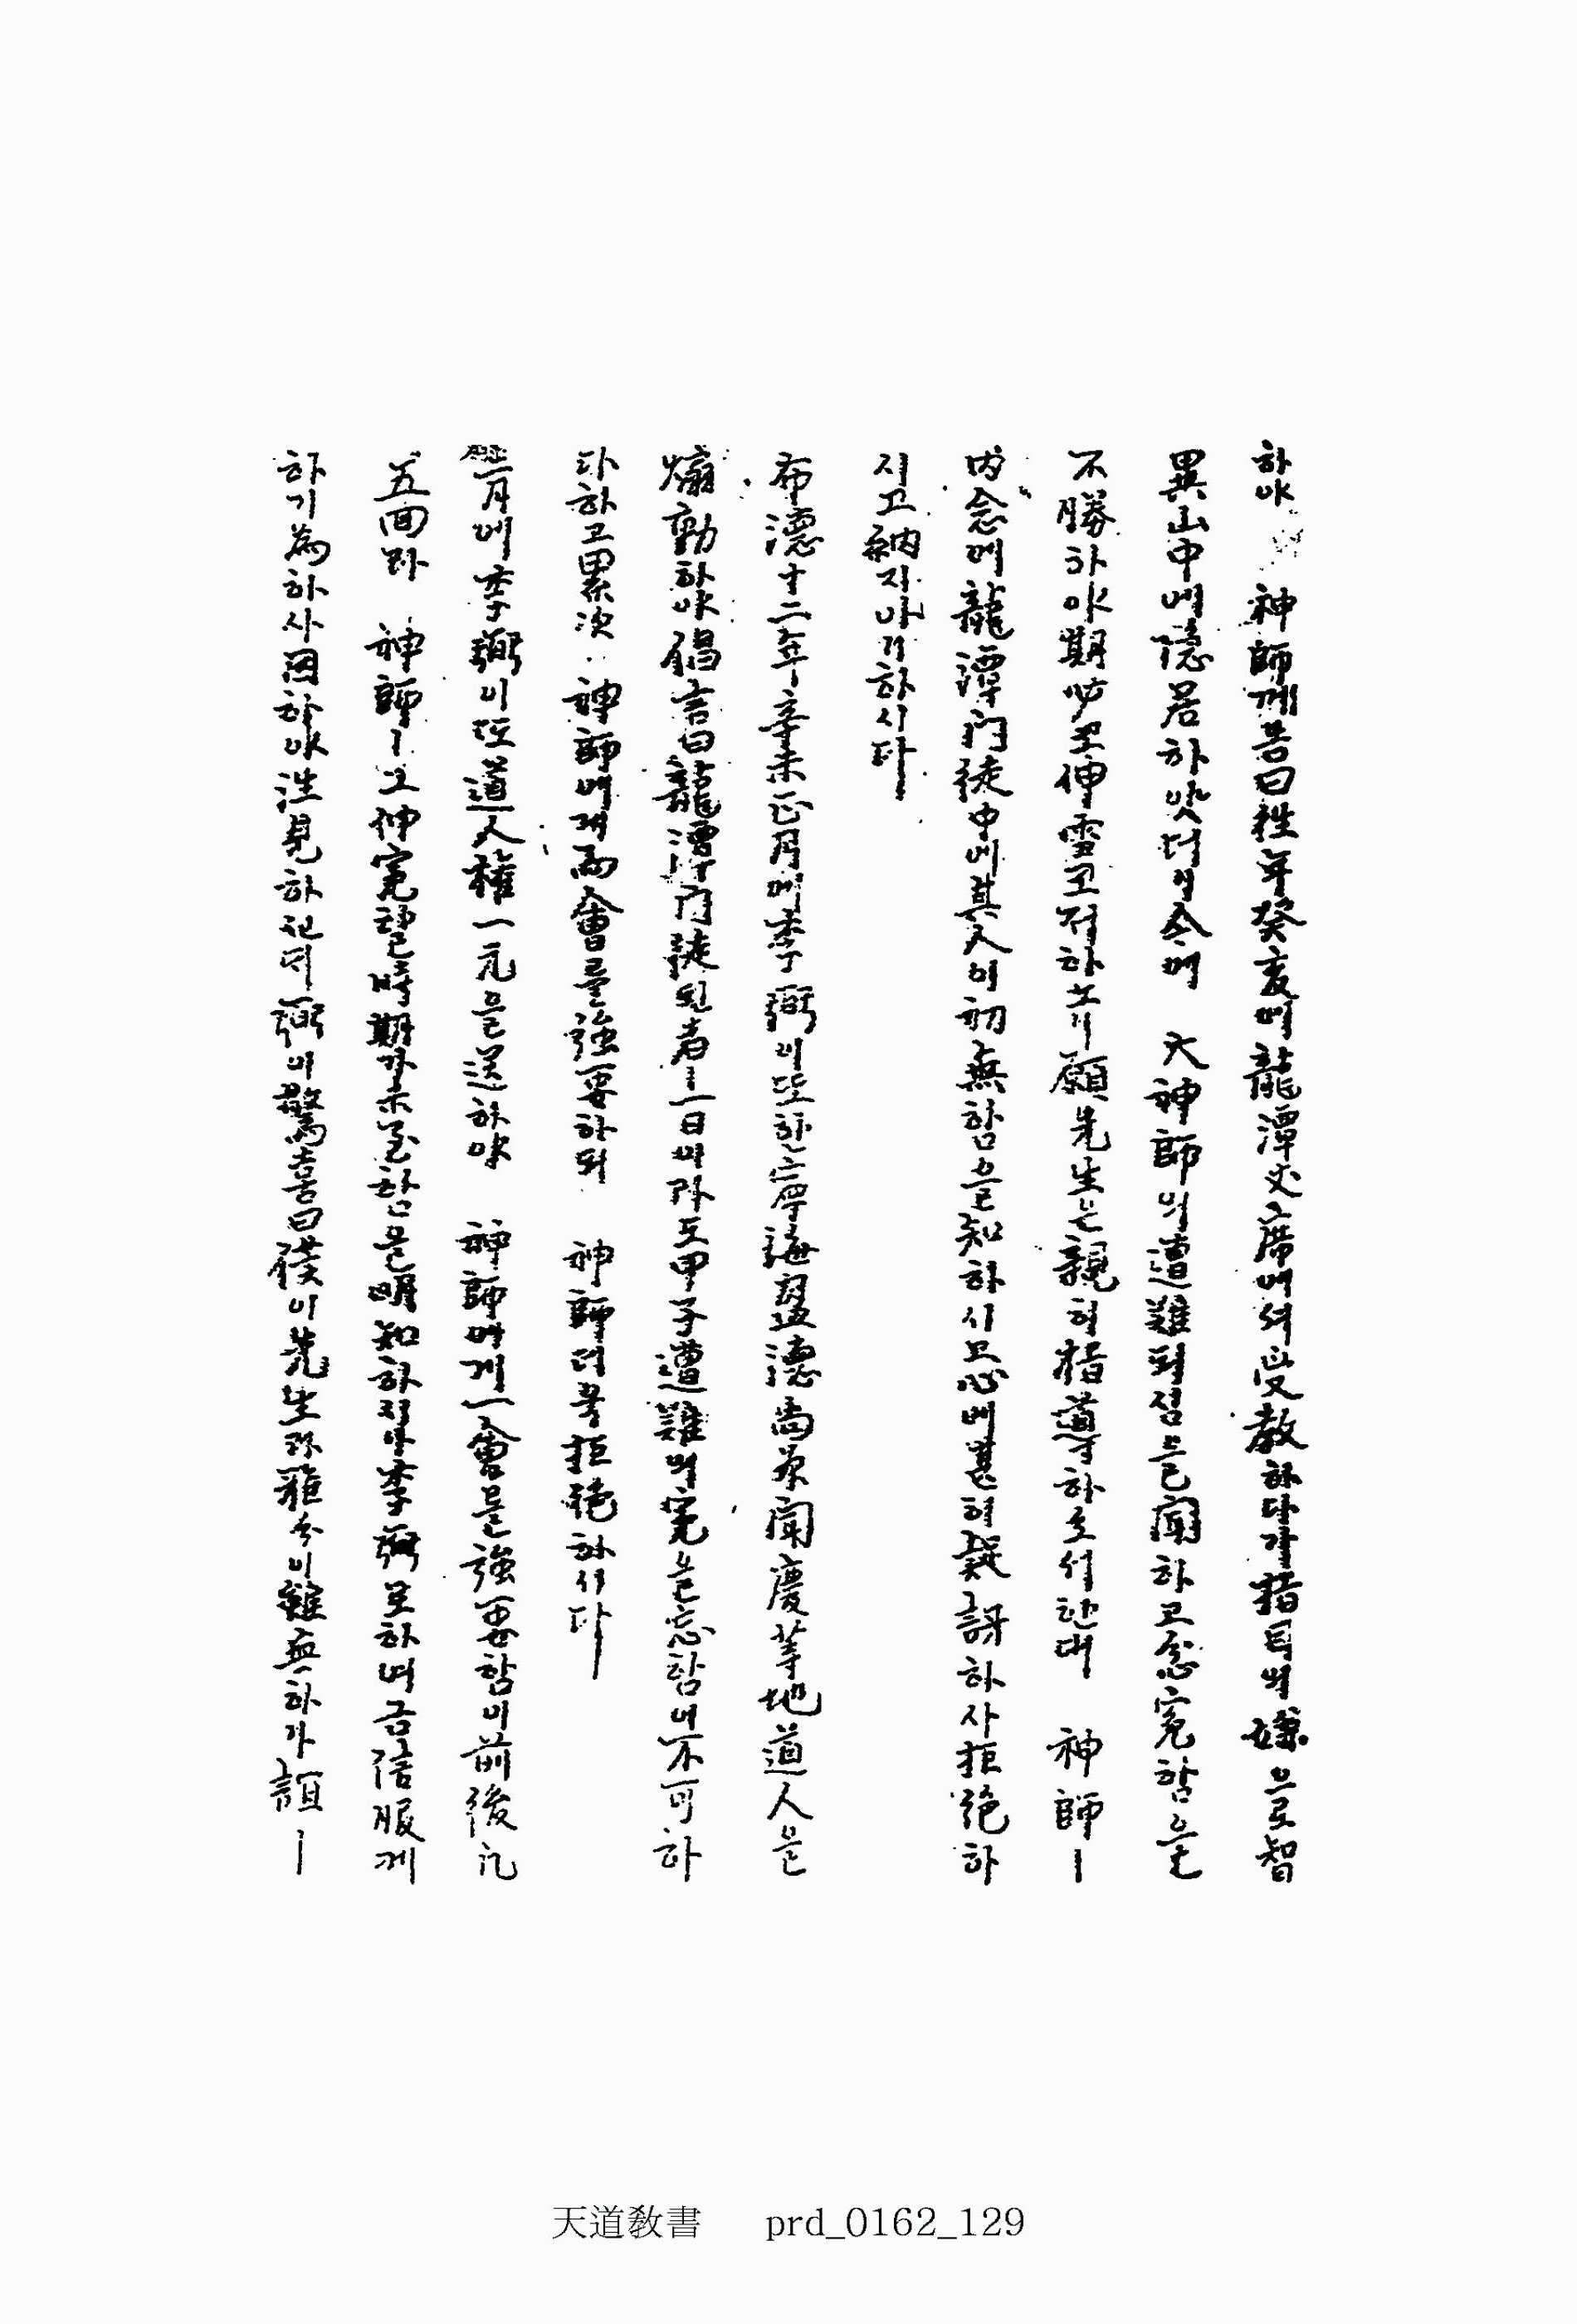 하야 神師께 告曰 往年癸亥에 龍潭丈席에셔 受敎하다가 指目의 嫌으로 智
異山中에 隱居하얏더니 今에 大神師의 遭難되심을 聞하고 忿寃함을
不勝하야 期必코 伸雪코저하노니 願先生은 親히 指導하소서한대 神師ㅣ
內念에 龍潭門徒中에 其人이 初無함을 知하시고 心에 甚히 疑訝하사 拒絶하
시고 納지아니하시다
布德十二年辛未正月에 李弼이 또한 寧海盈德尙州聞慶等地道人을
煽動하야 倡言曰 龍潭門徒된 者ㅣ 一日이라도 甲子遭難의 寃을 忘함이 不可하
다하고 累次 神師에게 面會를 強要하되 神師더욱 拒絶하시다
二月에 李弼이 또 道人權一元을 送하야 神師에게 一會를 強要함이 前後凡
五回라 神師ㅣ 그 伸寃할 時期가 未至함을 明知하지만 李弼로하여금 信服케
하기 爲하사 因하야 往見하신대 弼이 驚喜曰 僕이 先生과 雖分이 雖無하가 誼ㅣ